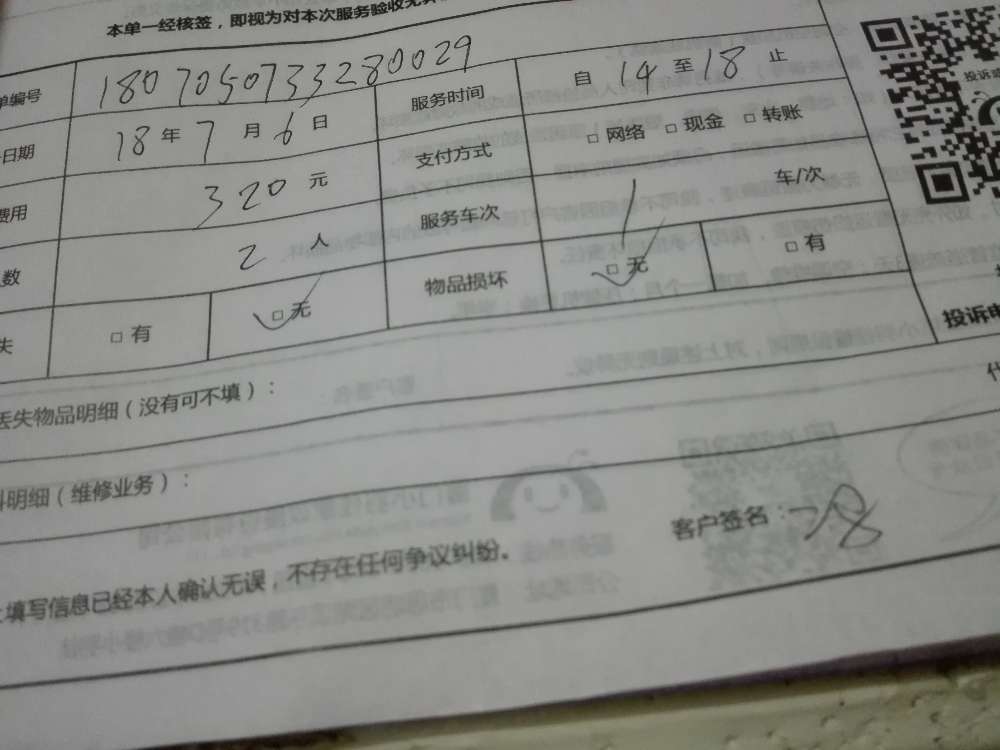 本单一经核签，即视为对本次服务验收无
单编号 1807050733280029 服务时间 自 14 至 18 止
日期 18 年 7 月 6 日 支付方式 □ 网络 □ 现金 □ 转账
费用 320 元 服务车次 1 车/次
数 2 人 物品损坏 □ 无 □ 有
失 □ 有 □ 无
投诉
丢失物品明细（没有可不填）：
料明细（维修业务）：
客户签名：
填写信息已经本人确认无误，不存在任何争议纠纷。